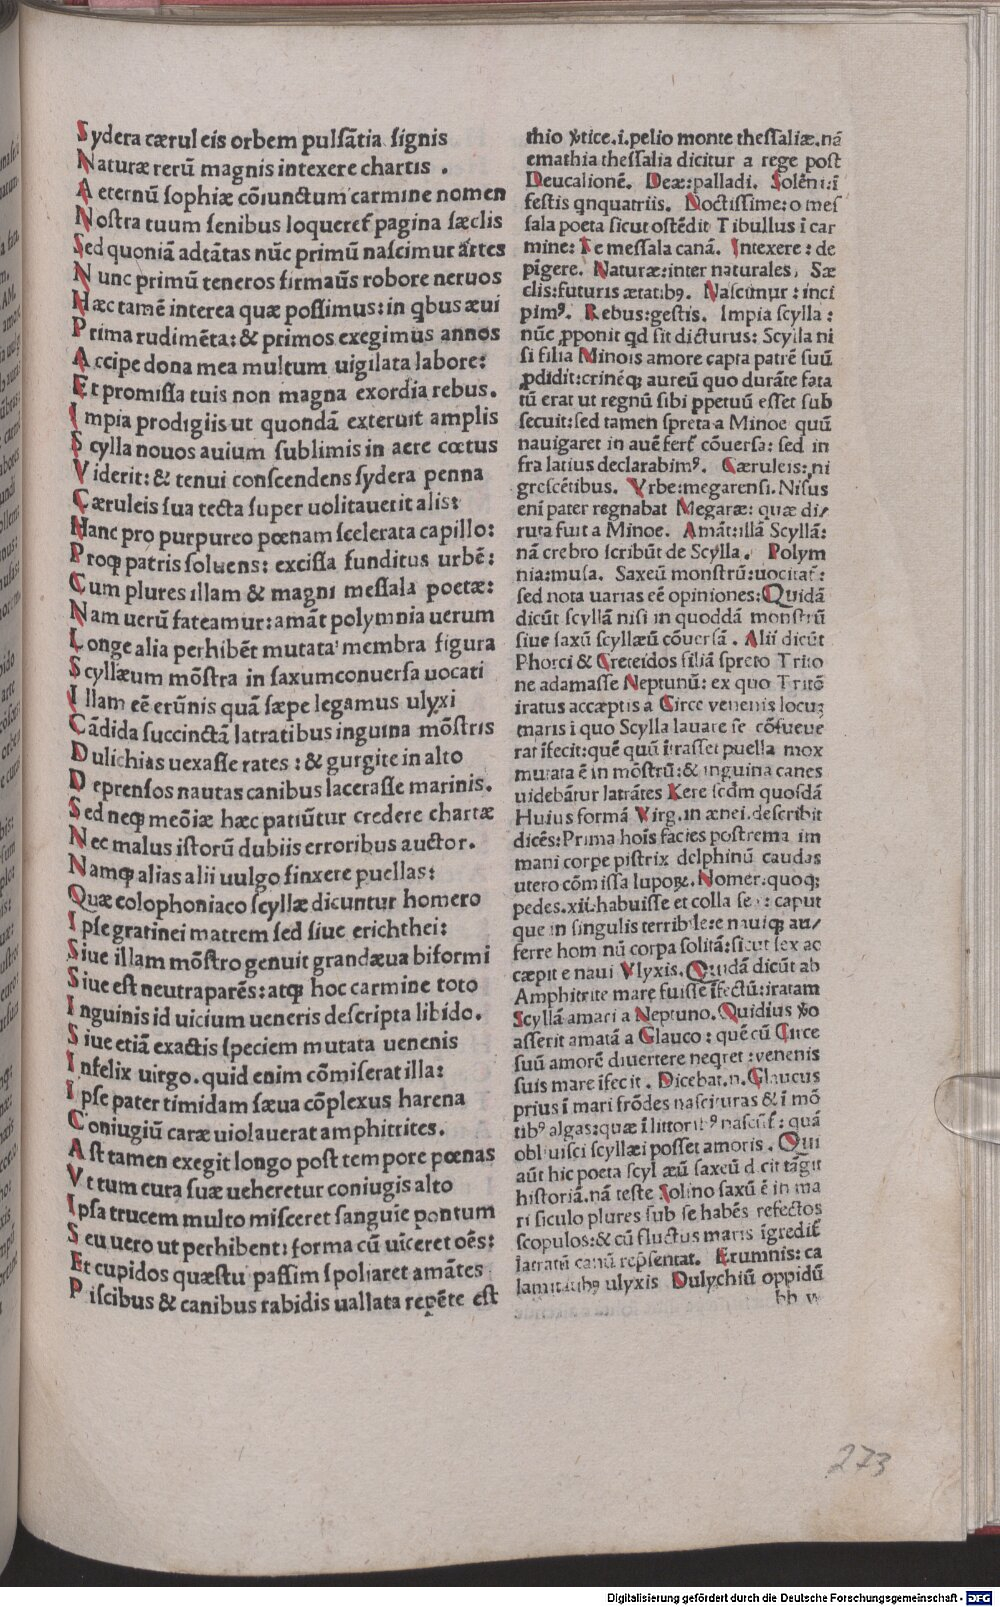 Sydera cærul eis orbem pulsātia signis
Naturæ rerū magnis intexere chartis .
Aeternū sophiæ cōiunctum carmine nomen
Nostra tuum senibus loqueret pagina sæclis
Sed quoniā ad tātas nūc primū nascimur artes
Nunc primū teneros firmaūs robore neruos
Hæc tamē interea quæ possimus: in qbus æui
Prima rudimēta: & primos exegimus annos
Accipe dona mea multum uigilata labore:
Et promissa tuis non magna exordia rebus.
Impia prodigiis ut quondā exteruit amplis
Scylla nouos auium sublimis in aere cœtus
Viderit: & tenui conscendens sydera penna
Cæruleis sua tecta super uolitauerit alis:
Hanc pro purpureo pœnam scelerata capillo:
Proq patris soluens: excissa funditus urbē:
Cum plures illam & magni messala poetæ:
Nam uerū fateamur: amāt polymnia uerum
Longe alia perhibēt mutata membra figura
Scyllæum mōstra in saxum conuersa uocati
Illam eē erūnis quā sæpe legamus ulyxi
Cādida succinctā latratibus inguina mōstris
Dulichias uexasse rates : & gurgite in alto
Deprensos nautas canibus lacerasse marinis.
Sed neq meōiæ hæc patiūtur credere chartæ
Nec malus istorū dubiis erroribus auctor.
Namq alias alii uulgo finxere puellas:
Quæ colophoniaco scyllæ dicuntur homero
Ipse gratinei matrem sed siue erichthei:
Siue illam mōstro genuit grandæua biformi
Siue est neutra parēs: atq hoc carmine toto
Inguinis id uicium ueneris descripta libido.
Siue etiā exactis speciem mutata uenenis
Infelix uirgo. quid enim cōmiserat illa:
Ipse pater timidam sæua cōplexus harena
Coniugiū caræ uiolauerat amphitrites.
Ast tamen exegit longo post tempore pœnas
Vt tum cura suæ ueheretur coniugis alto
Ipsa trucem multo misceret sanguie pontum
Seu uero ut perhibent: forma cū uiceret oēs:
Et cupidos quæstu passim spoliaret amātes
Piscibus & canibus rabidis uallata repēte est
thio v̊tice.i.pelio monte thessaliæ.nā
emathia thessalia dicitur a rege post
Deucalionē. Deæ:palladi. Solēni:ī
festis qnquatriis. Doctissime: o mes
sala poeta sicut ostēdit Tibullus i car
mine: Te messala canā. Intexere : de
pigere. Naturæ:inter naturales. Sæ
clis:futuris ætatibꝰ. Nascimur : inci
pimꝰ. Rebus:gestis. Impia scylla :
nūc pponit qd sit dicturus: Scylla ni
si filia Minois amore capta patrē suū
pdidit:crinēq; aureū quo durāte fata
tū erat ut regnū sibi ppetuū esset sub
secuit:sed tamen spreta a Minoe quū
nauigaret in auē fert cōuersa: sed in
fra latius declarabimꝰ. Cæruleis:ni
grescētibus. Vrbe:megarensi. Nisus
eni pater regnabat Megaræ: quæ di/
ruta fuit a Minoe. Amāt:illā Scyllā:
nā crebro scribūt de Scylla. Polym
nia:musa. Saxeū monstrū:uocitat:
sed nota uarias eē opiniones:Quidā
dicūt scyllā nisi in quoddā monstrū
siue saxū scyllæū cōuersā . Alii dicūt
Phorci & Creteidos filiā spreto Trito
ne adamasse Neptunū: ex quo Tritō
iratus accæptis a Circe venenis locuꝫ
maris i quo Scylla lauare se cōsueue
rat īfecit:quē quū ītrasset puella mox
mutata ē in mōstrū:& inguina canes
uidebātur latrātes Kere scdm quosdā
Huius formā Virg.in ænei.describit
dicēs:Prima hoīs facies postrema im
mani corpe pistrix delphinū caudas
utero cōmissa lupoꝝ. Nomer.quoq;
pedes.xii.habuisse et colla sex: caput
que in singulis terribile:e nauiq; au/
ferre hom nū corpa solitā:sicut sex ac
cæpit e naui Vlyxis. Quidā dicūt ab
Amphitrite mare fuisse īfectū:iratam
Scyllā amari a Neptuno. Quidius v̊o
asserit amatā a Glauco : quē cū Circe
suū amorē diuertere neqret : venenis
suis mare īfecit . Dicebat.n. Glaucus
prius ī mari frōdes nascituras & ī mō
tibꝰ algas:quæ ī littoribꝰ nascūt : quā
obliuisci scyllæi posset amoris . Qui
aūt hic poeta scyl æū saxeū d cit tāgit
historiā.nā teste Solino saxū ē in ma
ri siculo plures sub se habēs refectos
scopulos:& cū fluctus maris īgredit
latratū canū repsentat. Erumnis: ca
lamitatibꝰ ulyxis Dulychiū oppidū
bb v
273
Digitalisierung gefördert durch die Deutsche Forschungsgemeinschaft - DFG